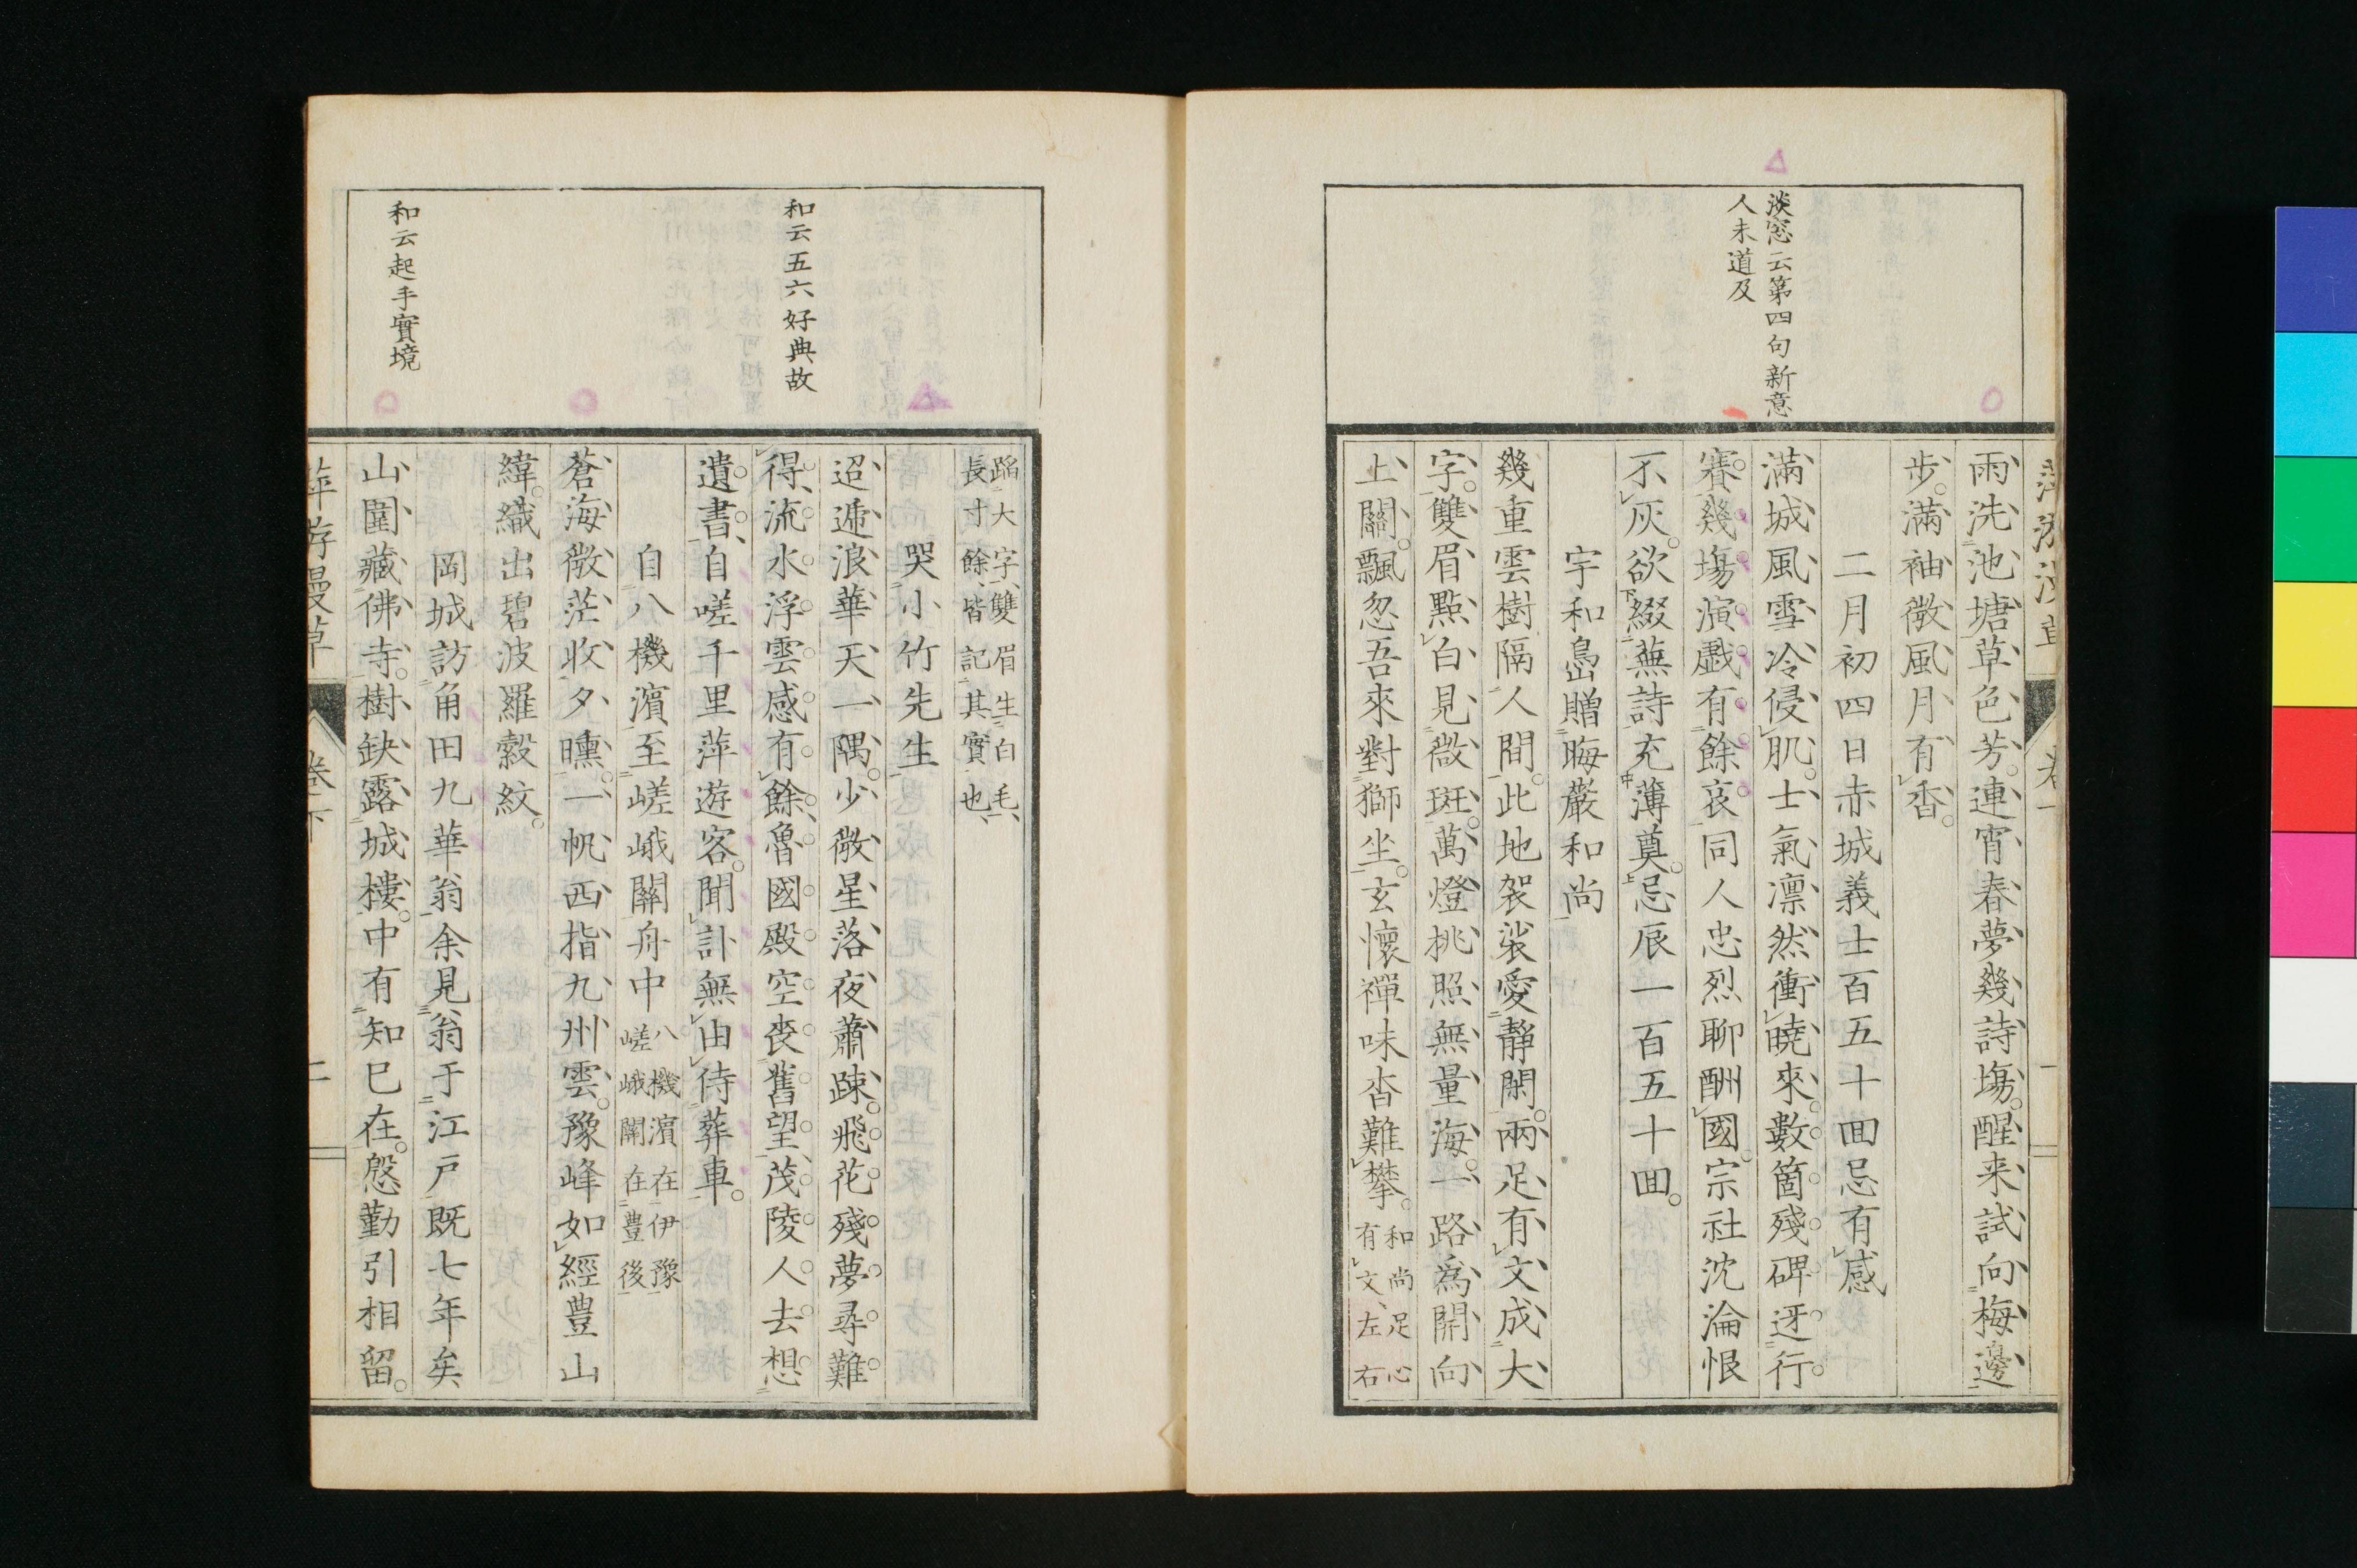 淡窓云第四句新意
人未道及
雨洗池塘草色芳。連宵春夢幾詩塲。醒来試向梅邊
步。滿袖微風月有香。
二月初四日赤城義士百五十回忌有感
滿城風雪冷侵肌。士氣凛然衝曉來。數箇殘碑迓行
賽。幾塲演戲有餘哀。同人忠烈聊酬國。宗社沈淪恨
不灰。欲綴蕪詩充薄奠。忌辰一百五十回。
宇和島贈晦巖和尚
幾重雲樹隔人間。此地袈裟愛靜閑。兩足有文成大
字。雙眉點白見微斑。萬燈桃照無量海。一路爲開向
上關。飄忽吾來對獅坐。玄懷禪味杳難攀。和尚足心
有文左右
蹈大字雙眉生白毛
長寸餘皆記其實也
哭小竹先生
迢遞浪華天一隅。少微星落夜蕭踈。飛花殘夢尋難
得。流水浮雲感有餘。魯國殿空喪舊望。茂陵人去想
遺書。自嗟千里萍遊客。聞訃無由侍葬車。
自八機濱至嵯峨關舟中八機濱在伊豫
嵯峨關在豊後
蒼海微茫收夕曛。一帆西指九州雲。豫峰如經豊山
緯。織出碧波羅縠紋。
岡城訪角田九華翁余見翁于江戸既七年矣
山圍藏佛寺。樹缺露城樓。中有知已在。慇勤引相留。
和云五六好典故
和云起手實境
萍游漫草
卷下
二